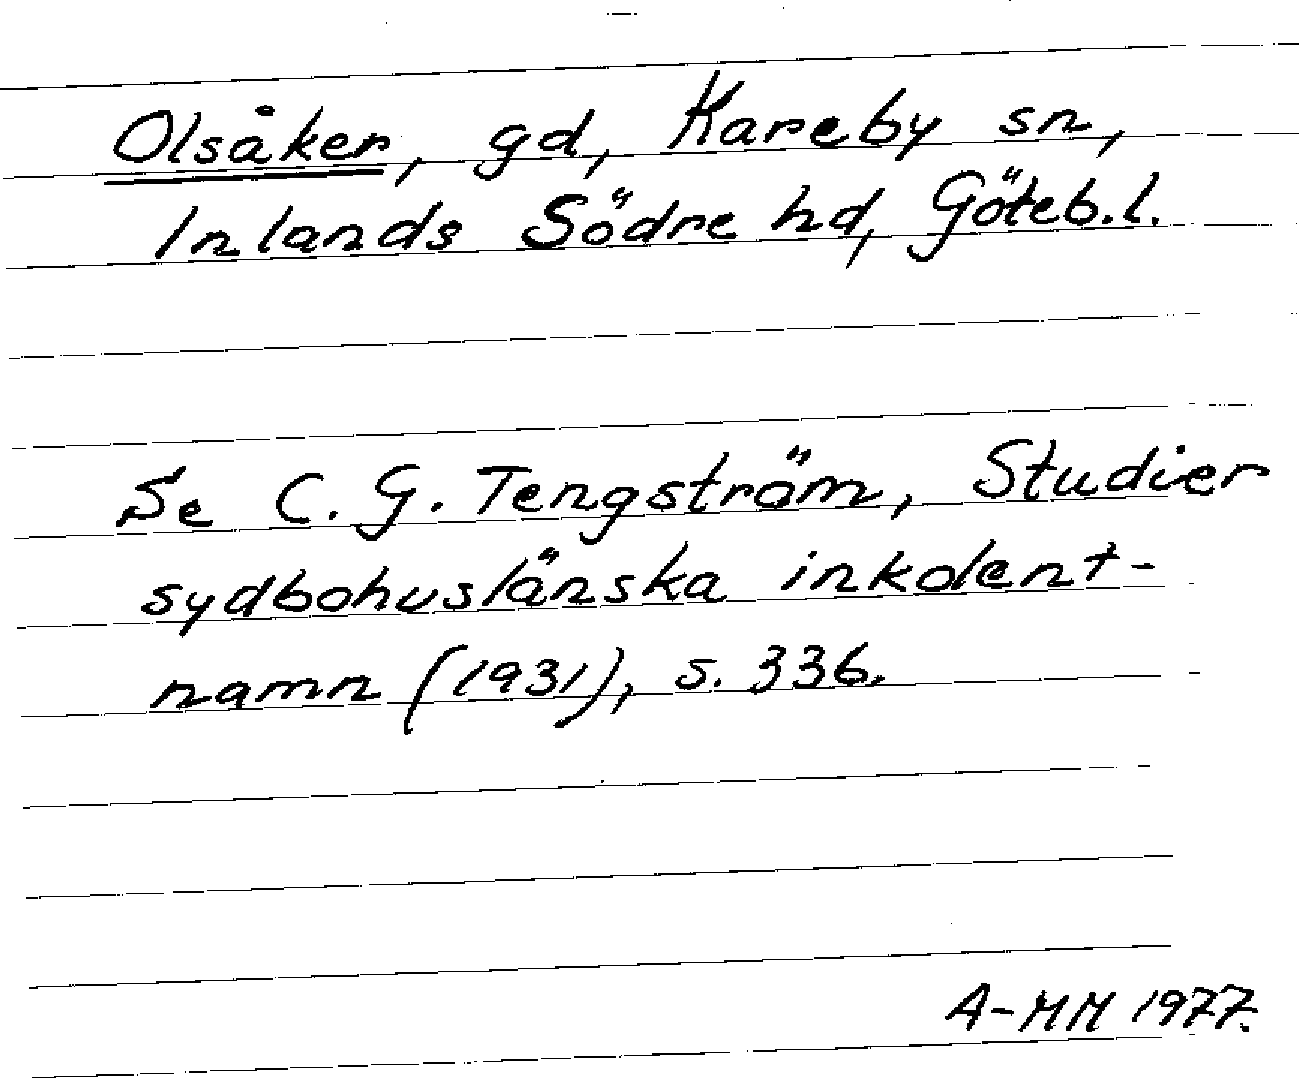 Olsåker, gd, Kareby sn,
Inlands Södre hd, Göteb.l.
Se C. G. Tengström, Studier
sydbohuslänska inkolent-
namn (1931), s. 336.
A-MM 1977.